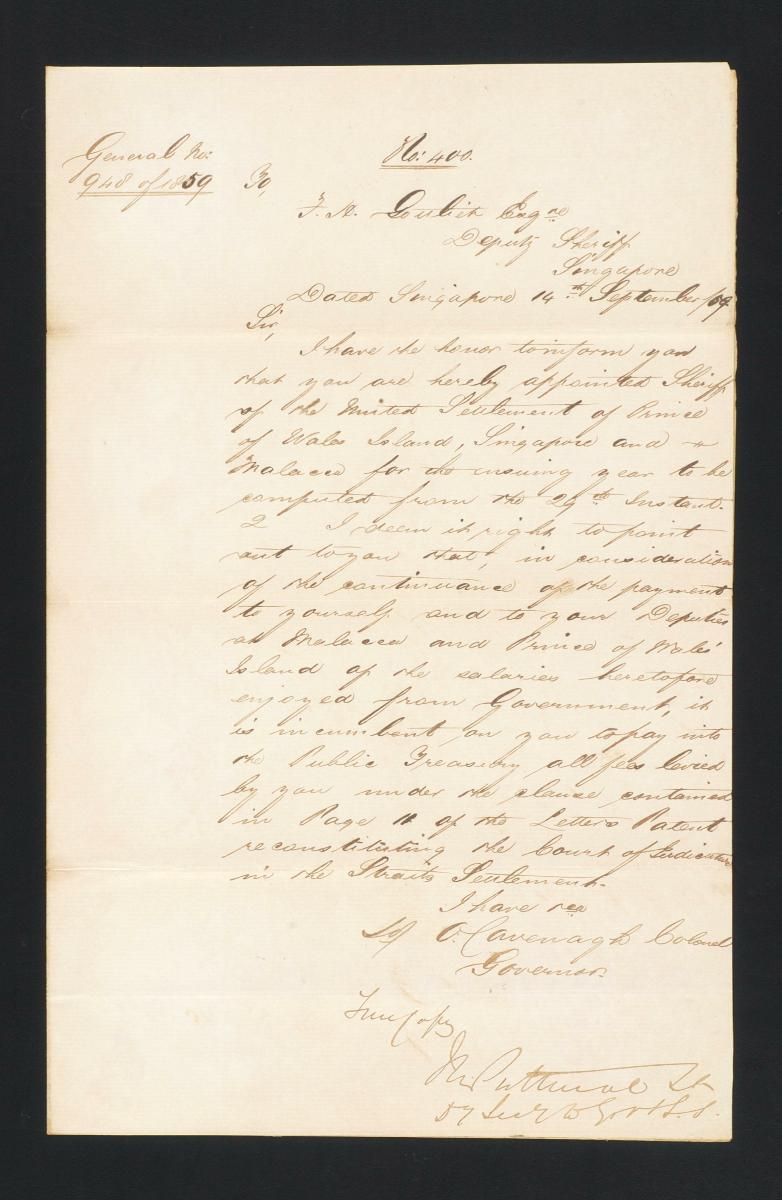 General No:
948 of 1859
No: 400.
To,
F. H. Gottlieb Esqre
Deputy Sheriff
Singapore
Dated Singapore 14th September /59.
Sir,
I have the honor to inform you
that you are hereby appointed Sheriff
of the United Settlement of Prince
of Wales Island, Singapore and
Malacca for the ensuing year to be
computed from the 29th Instant.
2 I deem it right to point
out to you that, in consideration
of the continuance of the payment
to yourself and to your Deputies
at Malacca and Prince of Wales'
Island of the salaries heretofore
enjoyed from Government, it
is incumbent on you to pay into
the Public Treasury all fees levied
by you under the clause contained
in Page 11 of the Letters Patent
reconstituting the Court of Judicature
in the Straits Settlement.
I have &ca
Sd/ O. Cavenagh Colonel
Governor.
True Copy
Lt
Dy Secy to Govt S.S.